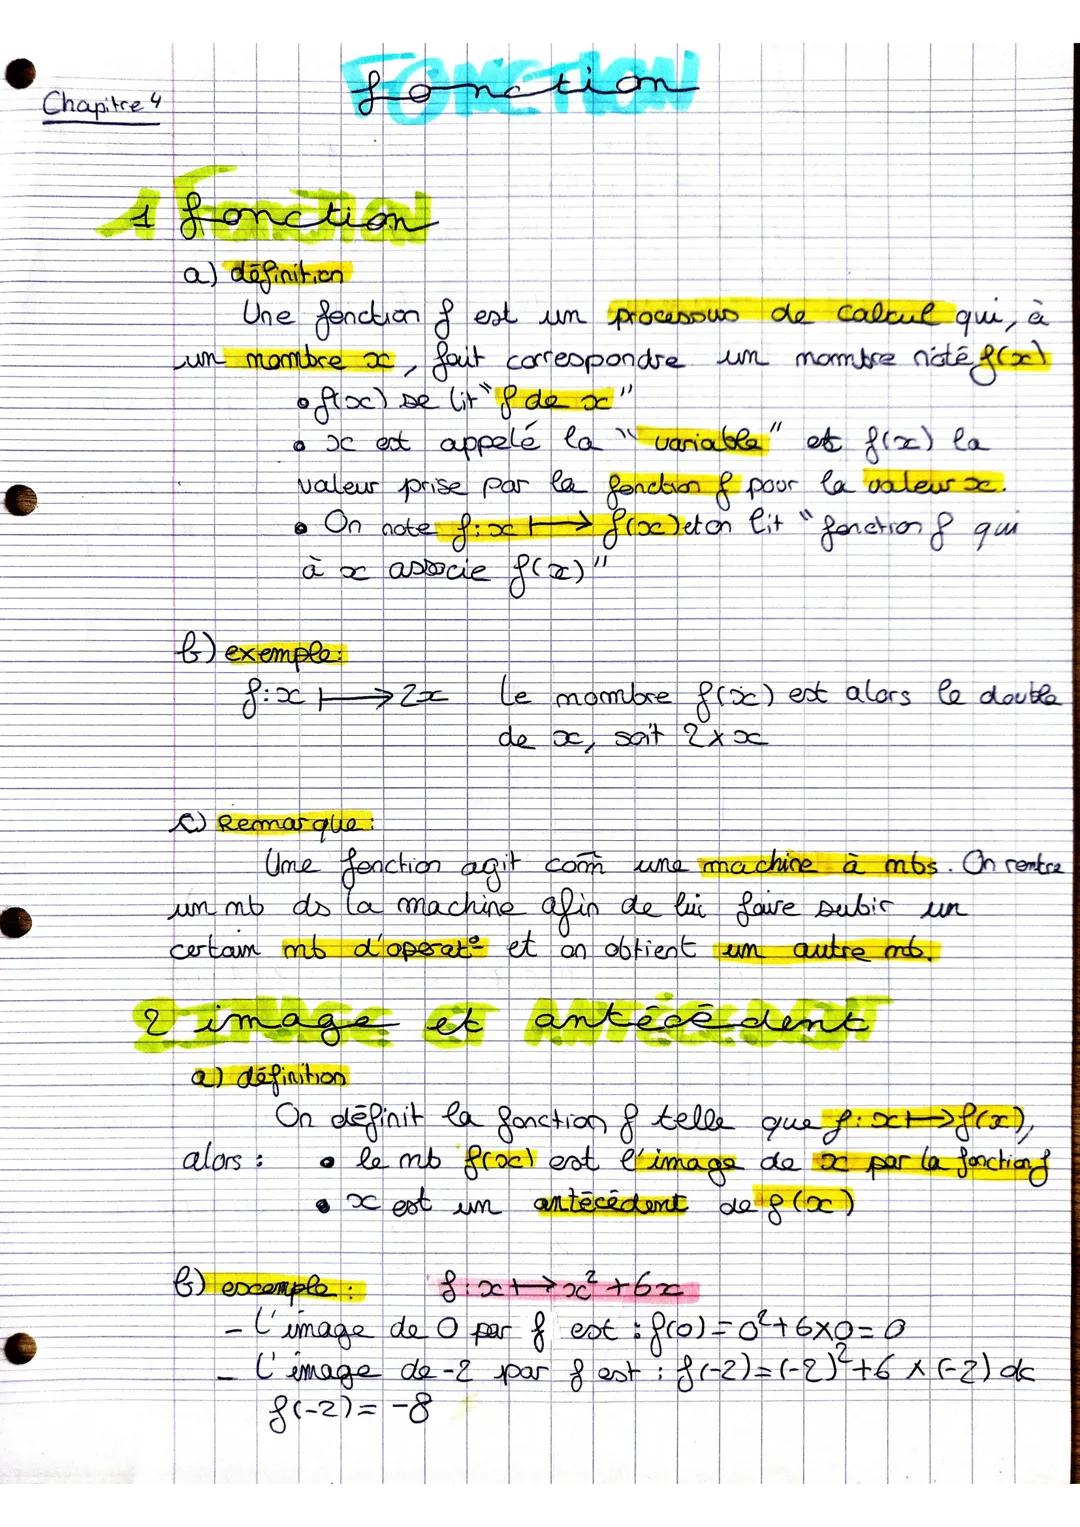 Chapitre 4
fonction
1 fonction
a) définition
Une fonction f est un processus de calcul qui, à
un nombre x, fait correspondre un nombre noté f(x)
• f(x) se lit "f de x"
• x est appelé la "variable" et f(x) la
valeur prise par la fonction f pour la valeur x.
• On note f: x ↦ f(x) et on lit "fonction f qui
à x associe f(x)"
b) exemple:
f: x ↦ 2x Le nombre f(x) est alors le double
de x, soit 2 × x
c) Remarque:
Une fonction agit com̃ une machine à nbs. On rentre
un nb ds la machine afin de lui faire subir un
certain nb d'operat° et on obtient un autre nb.
2 image et antécédent
a) définition
On définit la fonction f telle que f: x ↦ f(x),
alors : • le nb f(x) est l'image de x par la fonction f
• x est un antécédent de f(x)
b) exemple : f: x ↦ x² + 6x
- L'image de 0 par f est : f(0) = 0² + 6 × 0 = 0
- L'image de -2 par f est : f(-2) = (-2)² + 6 × (-2) dc
f(-2) = -8